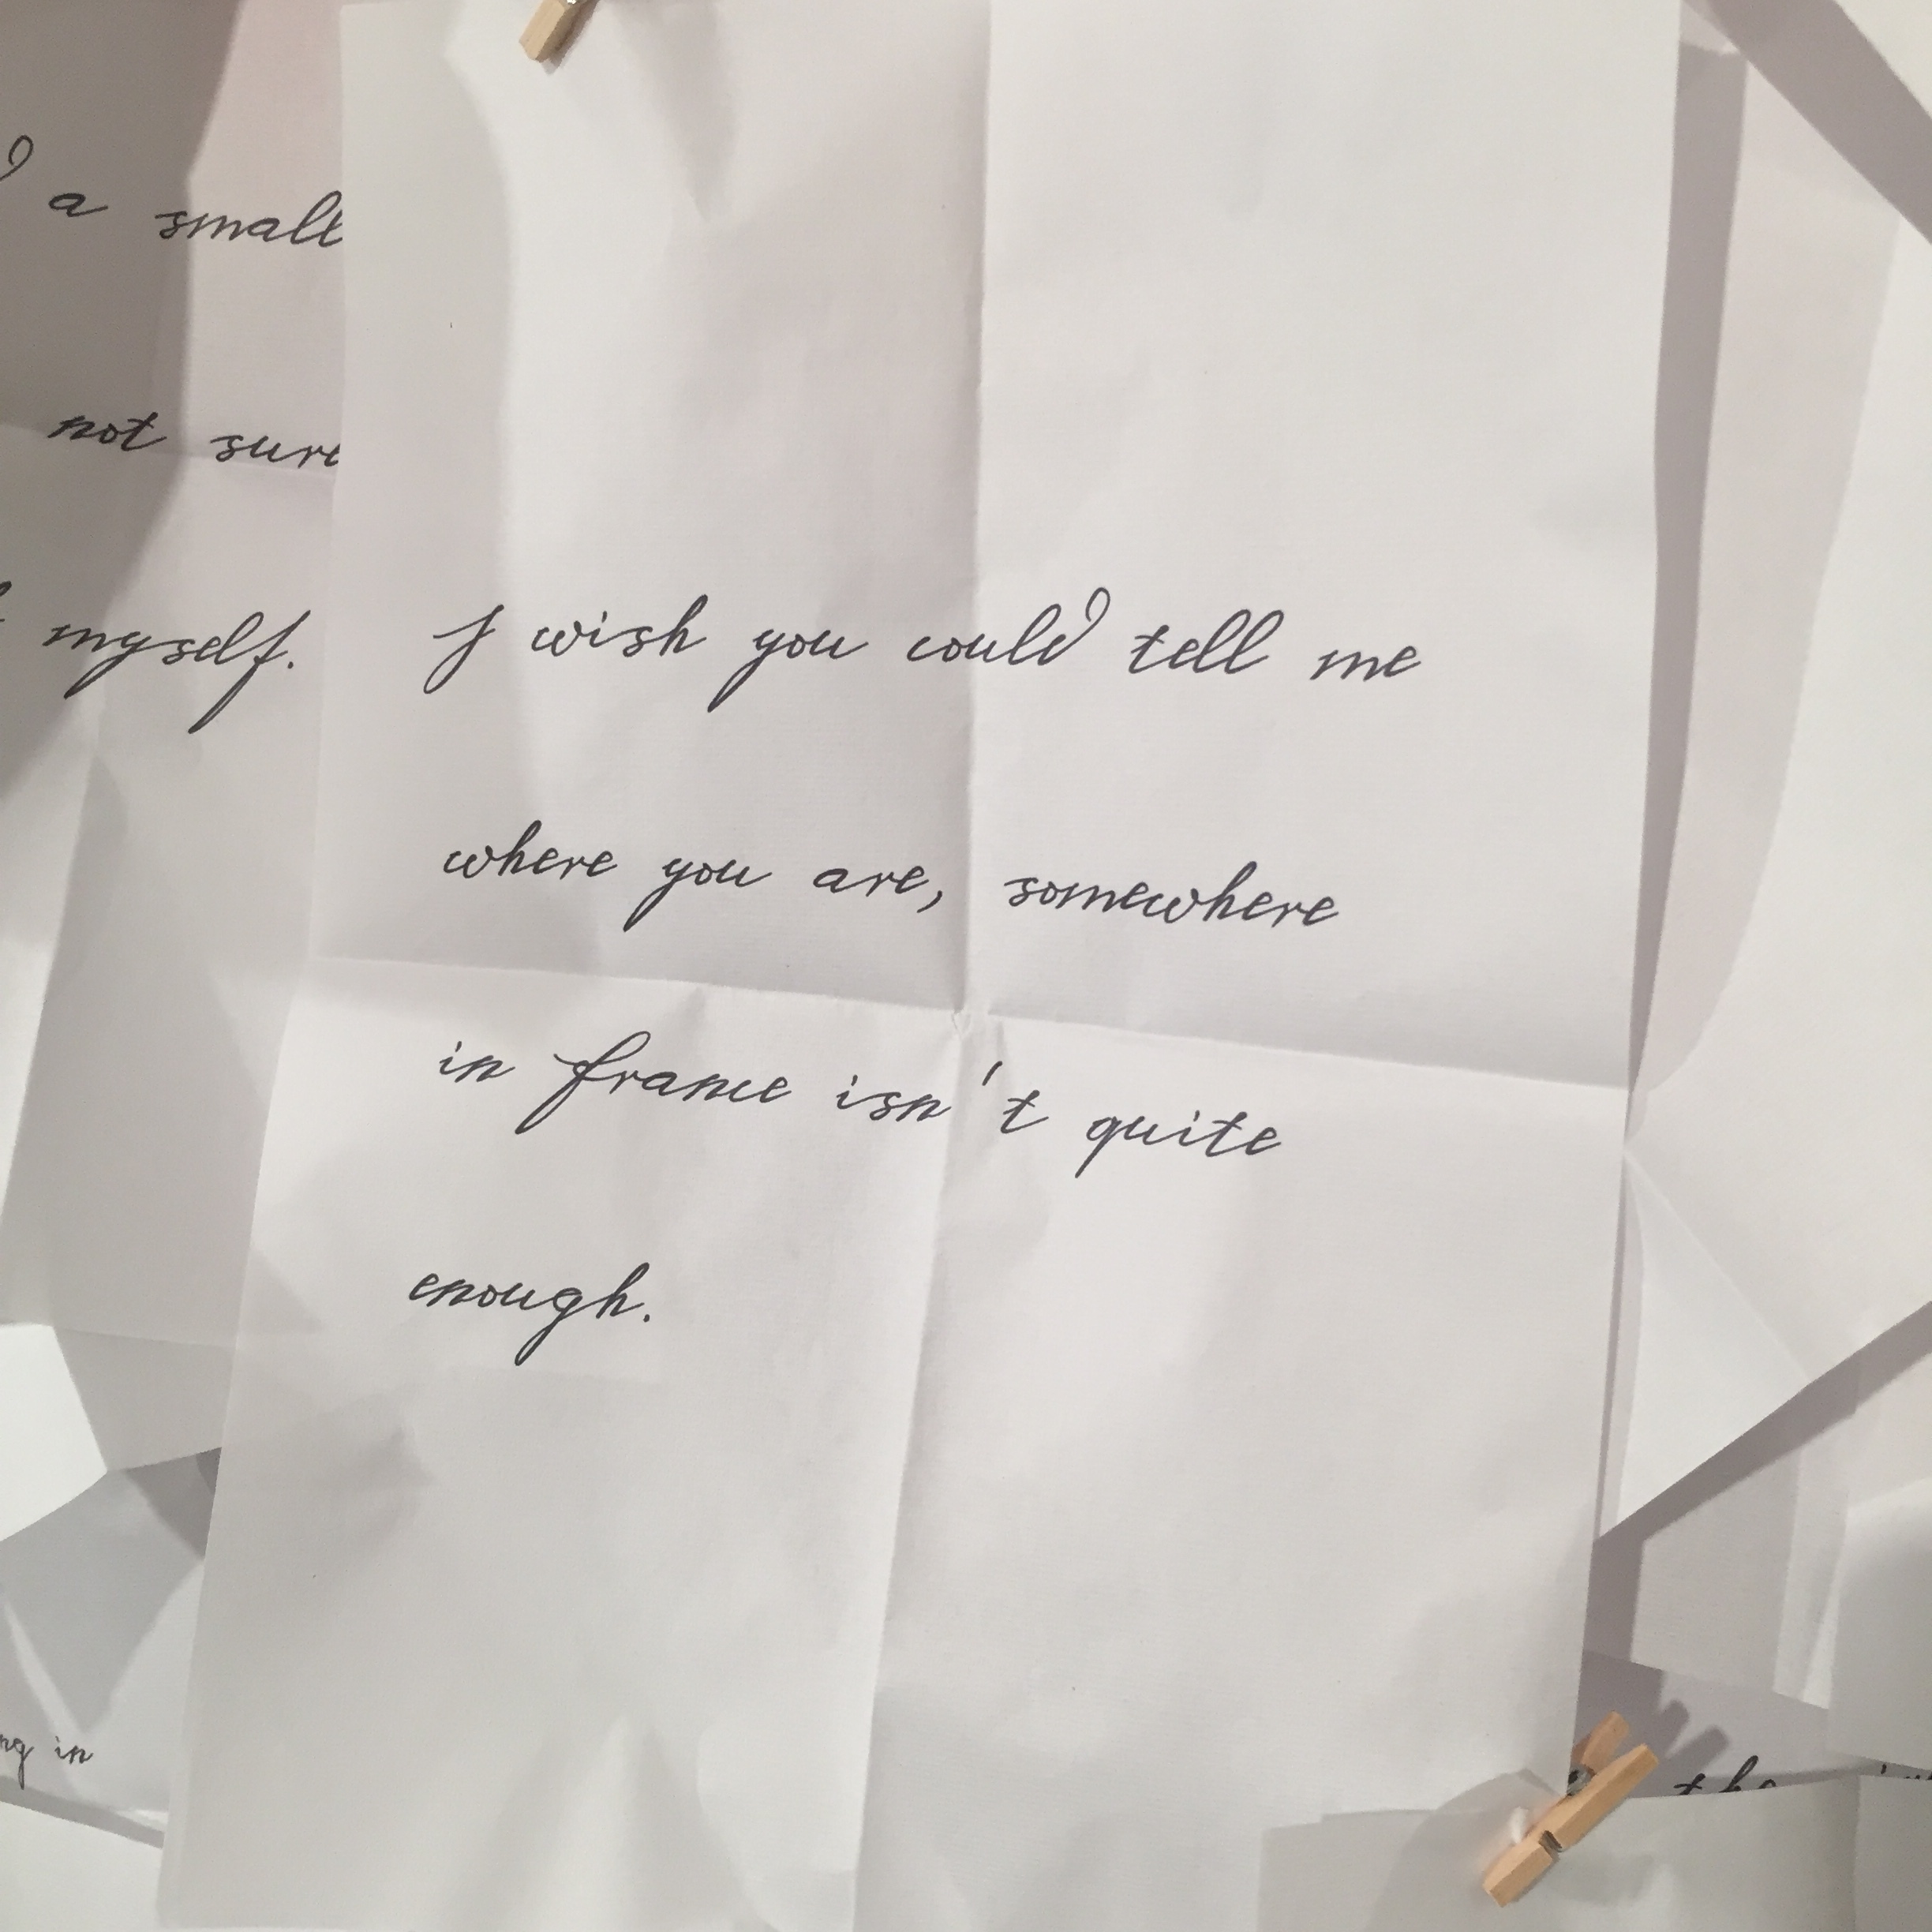 a small
not sure
myself.
I wish you could tell me
where you are, somewhere
in france isn't quite
enough.
in
the